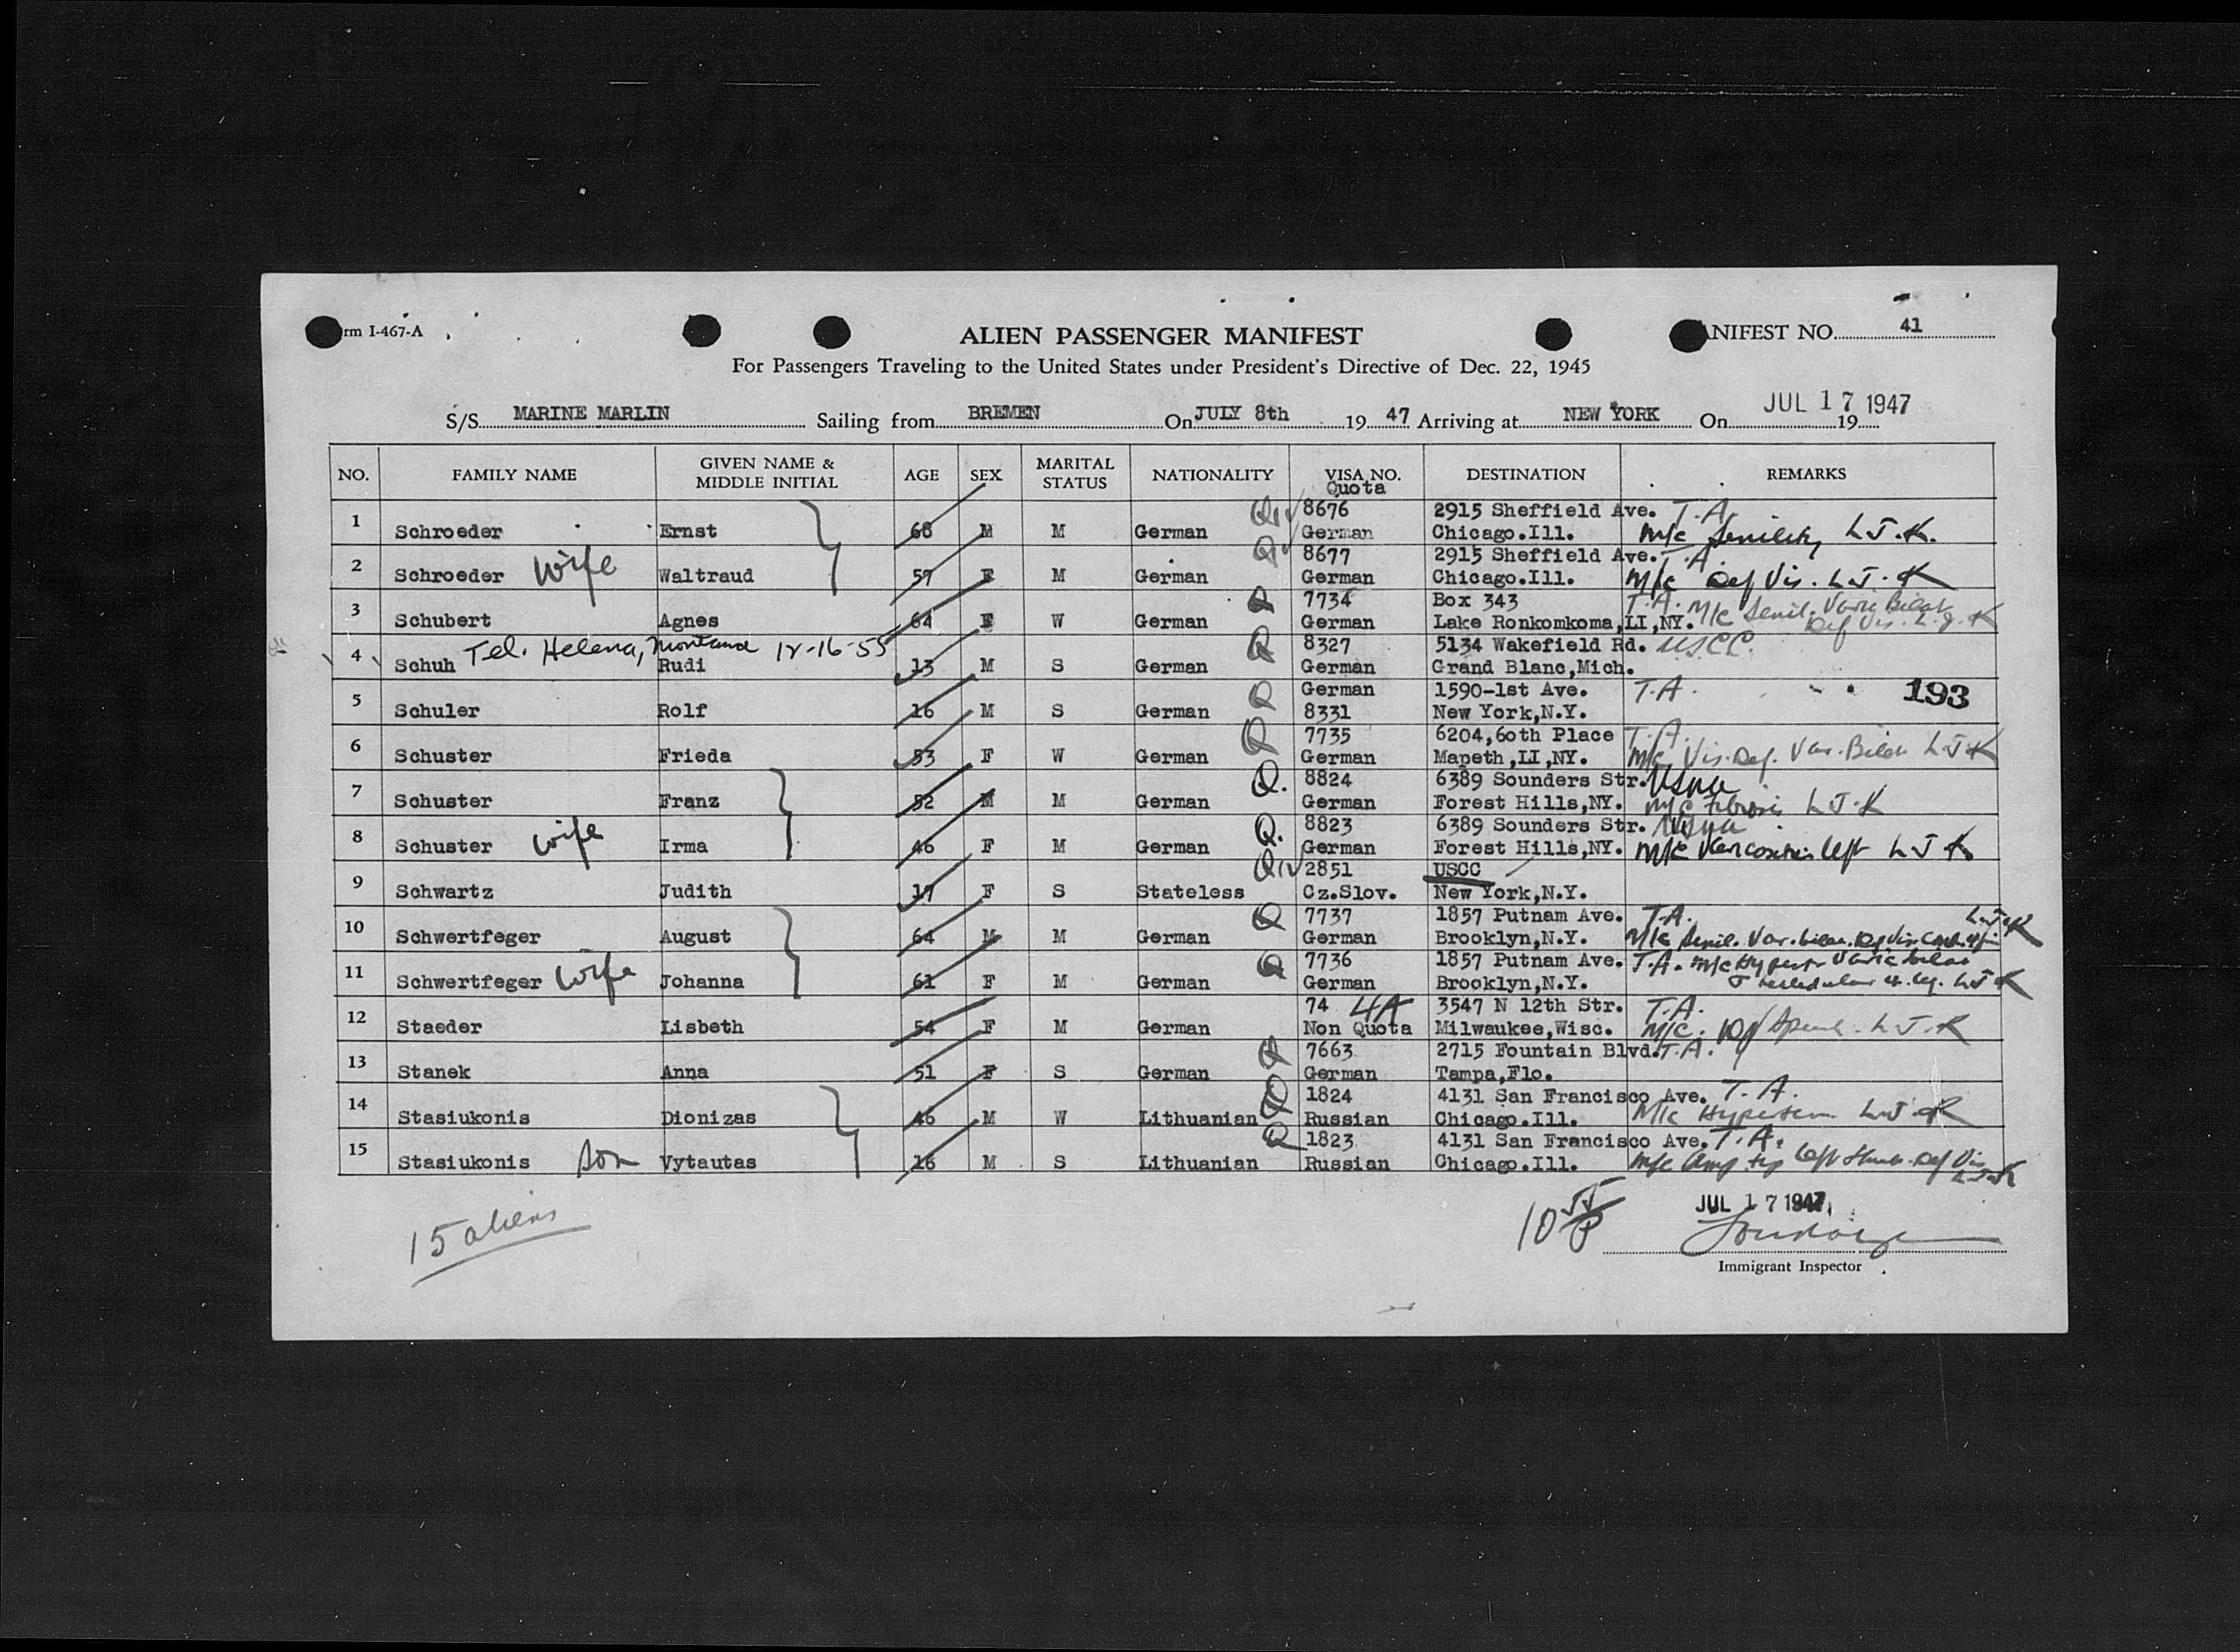 rm I-467-A
ALIEN PASSENGER MANIFEST
ANIFEST NO. 41
For Passengers Traveling to the United States under President's Directive of Dec. 22, 1945
S/S MARINE MARLIN Sailing from BREMEN On JULY 8th 19 47 Arriving at NEW YORK On JUL 17 1947 19
NO. FAMILY NAME GIVEN NAME & MIDDLE INITIAL AGE SEX MARITAL STATUS NATIONALITY VISA NO. Quota DESTINATION REMARKS
1 Schroeder Ernst 68 M M German 8676 German 2915 Sheffield Ave. Chicago.Ill. T.A. M/c Senility L.J.K.
2 Schroeder wife Waltraud 57 F M German 8677 German 2915 Sheffield Ave. Chicago.Ill. T.A. M/c Def Vis. L.J.K
3 Schubert Agnes 64 F W German Q 7734 German Box 343 Lake Ronkomkoma,LI,NY. T.A. M/c Senil. Varic Bilat Def Vis. L.J.K
4 Schuh Tel. Helena, Montana 12-16-55 Rudi 13 M S German Q 8327 German 5134 Wakefield Rd. Grand Blanc,Mich. USCC.
5 Schuler Rolf 16 M S German Q German 8331 1590-1st Ave. New York,N.Y. T.A. 193
6 Schuster Frieda 53 F W German Q 7735 German 6204,60th Place Mapeth,LI,NY. T.A. M/c Vis. Def. Var. Bilat L.J.K
7 Schuster Franz 52 M M German Q. 8824 German 6389 Sounders Str. Forest Hills,NY. M/c Fibrosis L.J.K
8 Schuster wife Irma 46 F M German Q. 8823 German 6389 Sounders Str. Forest Hills,NY. M/c left L J K
9 Schwartz Judith 17 F S Stateless 2851 Cz.Slov. USCC New York,N.Y.
10 Schwertfeger August 64 M M German Q 7737 German 1857 Putnam Ave. Brooklyn,N.Y. T.A. M/c Senil. Var. bilat. Def Vis. L.J.K
11 Schwertfeger wife Johanna 61 F M German Q 7736 German 1857 Putnam Ave. Brooklyn,N.Y. T.A. M/c Hypert Varic bilat L.J.K
12 Staeder Lisbeth 54 F M German 74 4A Non Quota 3547 N 12th Str. Milwaukee,Wisc. T.A. M/C. Def L.J.K
13 Stanek Anna 51 F S German Q 7663 German 2715 Fountain Blvd. Tampa,Flo. T.A.
14 Stasiukonis Dionizas 46 M W Lithuanian Q 1824 Russian 4131 San Francisco Ave. Chicago.Ill. T.A. M/c Hyperten L.J.K
15 Stasiukonis son Vytautas 16 M S Lithuanian Q 1823 Russian 4131 San Francisco Ave. Chicago.Ill. T.A. M/c Amp tip left Def Vis L.J.K
15 aliens
10
JUL 17 1947
Immigrant Inspector